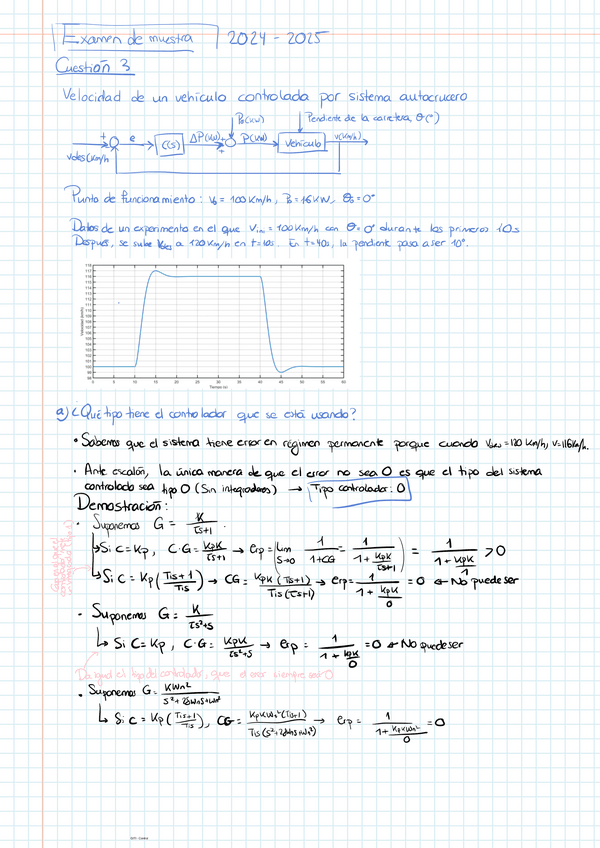 Examen de muestra 2024 - 2025
Cuestión 3
Velocidad de un vehículo controlada por sistema autocrucero
P₀(kW) Pendiente de la carretera, θ(°)
+ e C(s) ΔP(kW) + P(kW) Vehículo v(km/h)
Vdes(km/h - +
Punto de funcionamiento: V₀ = 100 km/h, P₀ = 16 kW, θ₀ = 0°
Datos de un experimento en el que Vini = 100 km/h con θ = 0° durante los primeros 10s
Después, se sube Vdes a 120 km/h en t=10s. En t=40s, la pendiente pasa a ser 10°.
118
117
116
115
114
113
112
111
110
109
108
107
106
105
104
103
102
101
100
99
98
Velocidad (km/h)
0 5 10 15 20 25 30 35 40 45 50 55 60
Tiempo (s)
a) ¿Qué tipo tiene el controlador que se está usando?
• Sabemos que el sistema tiene error en régimen permanente porque cuando Vdes = 120 km/h, v = 116 km/h.
• Ante escalón, la única manera de que el error no sea 0 es que el tipo del sistema
controlado sea tipo 0 (Sin integradores) → Tipo controlador: 0
Demostración:
• Suponemos G = K/(τs+1).
↳ Si C = Kp, C·G = KpK/(τs+1) → erp = | lim s→0 1/(1+CG) = 1/(1 + KpK/(τs+1)) | = 1/(1 + KpK/1) > 0
↳ Si C = Kp(Tis+1/Tis) → CG = KpK(Tis+1)/Tis(τs+1) → erp = 1/(1 + KpK/0) = 0 ← No puede ser
• Suponemos G = K/(τs²+s)
↳ Si C = Kp, C·G = KpK/(τs²+s) → erp = 1/(1 + KpK/0) = 0 ← No puede ser
Da igual el tipo del controlador, que el error siempre será 0
• Suponemos G = KWn²/(s²+2δWns+Wn²)
↳ Si C = Kp(Tis+1/Tis), CG = KpKWn²(Tis+1)/Tis(s²+2δWns+Wn²) → erp = 1/(1 + KpKWn²/0) = 0